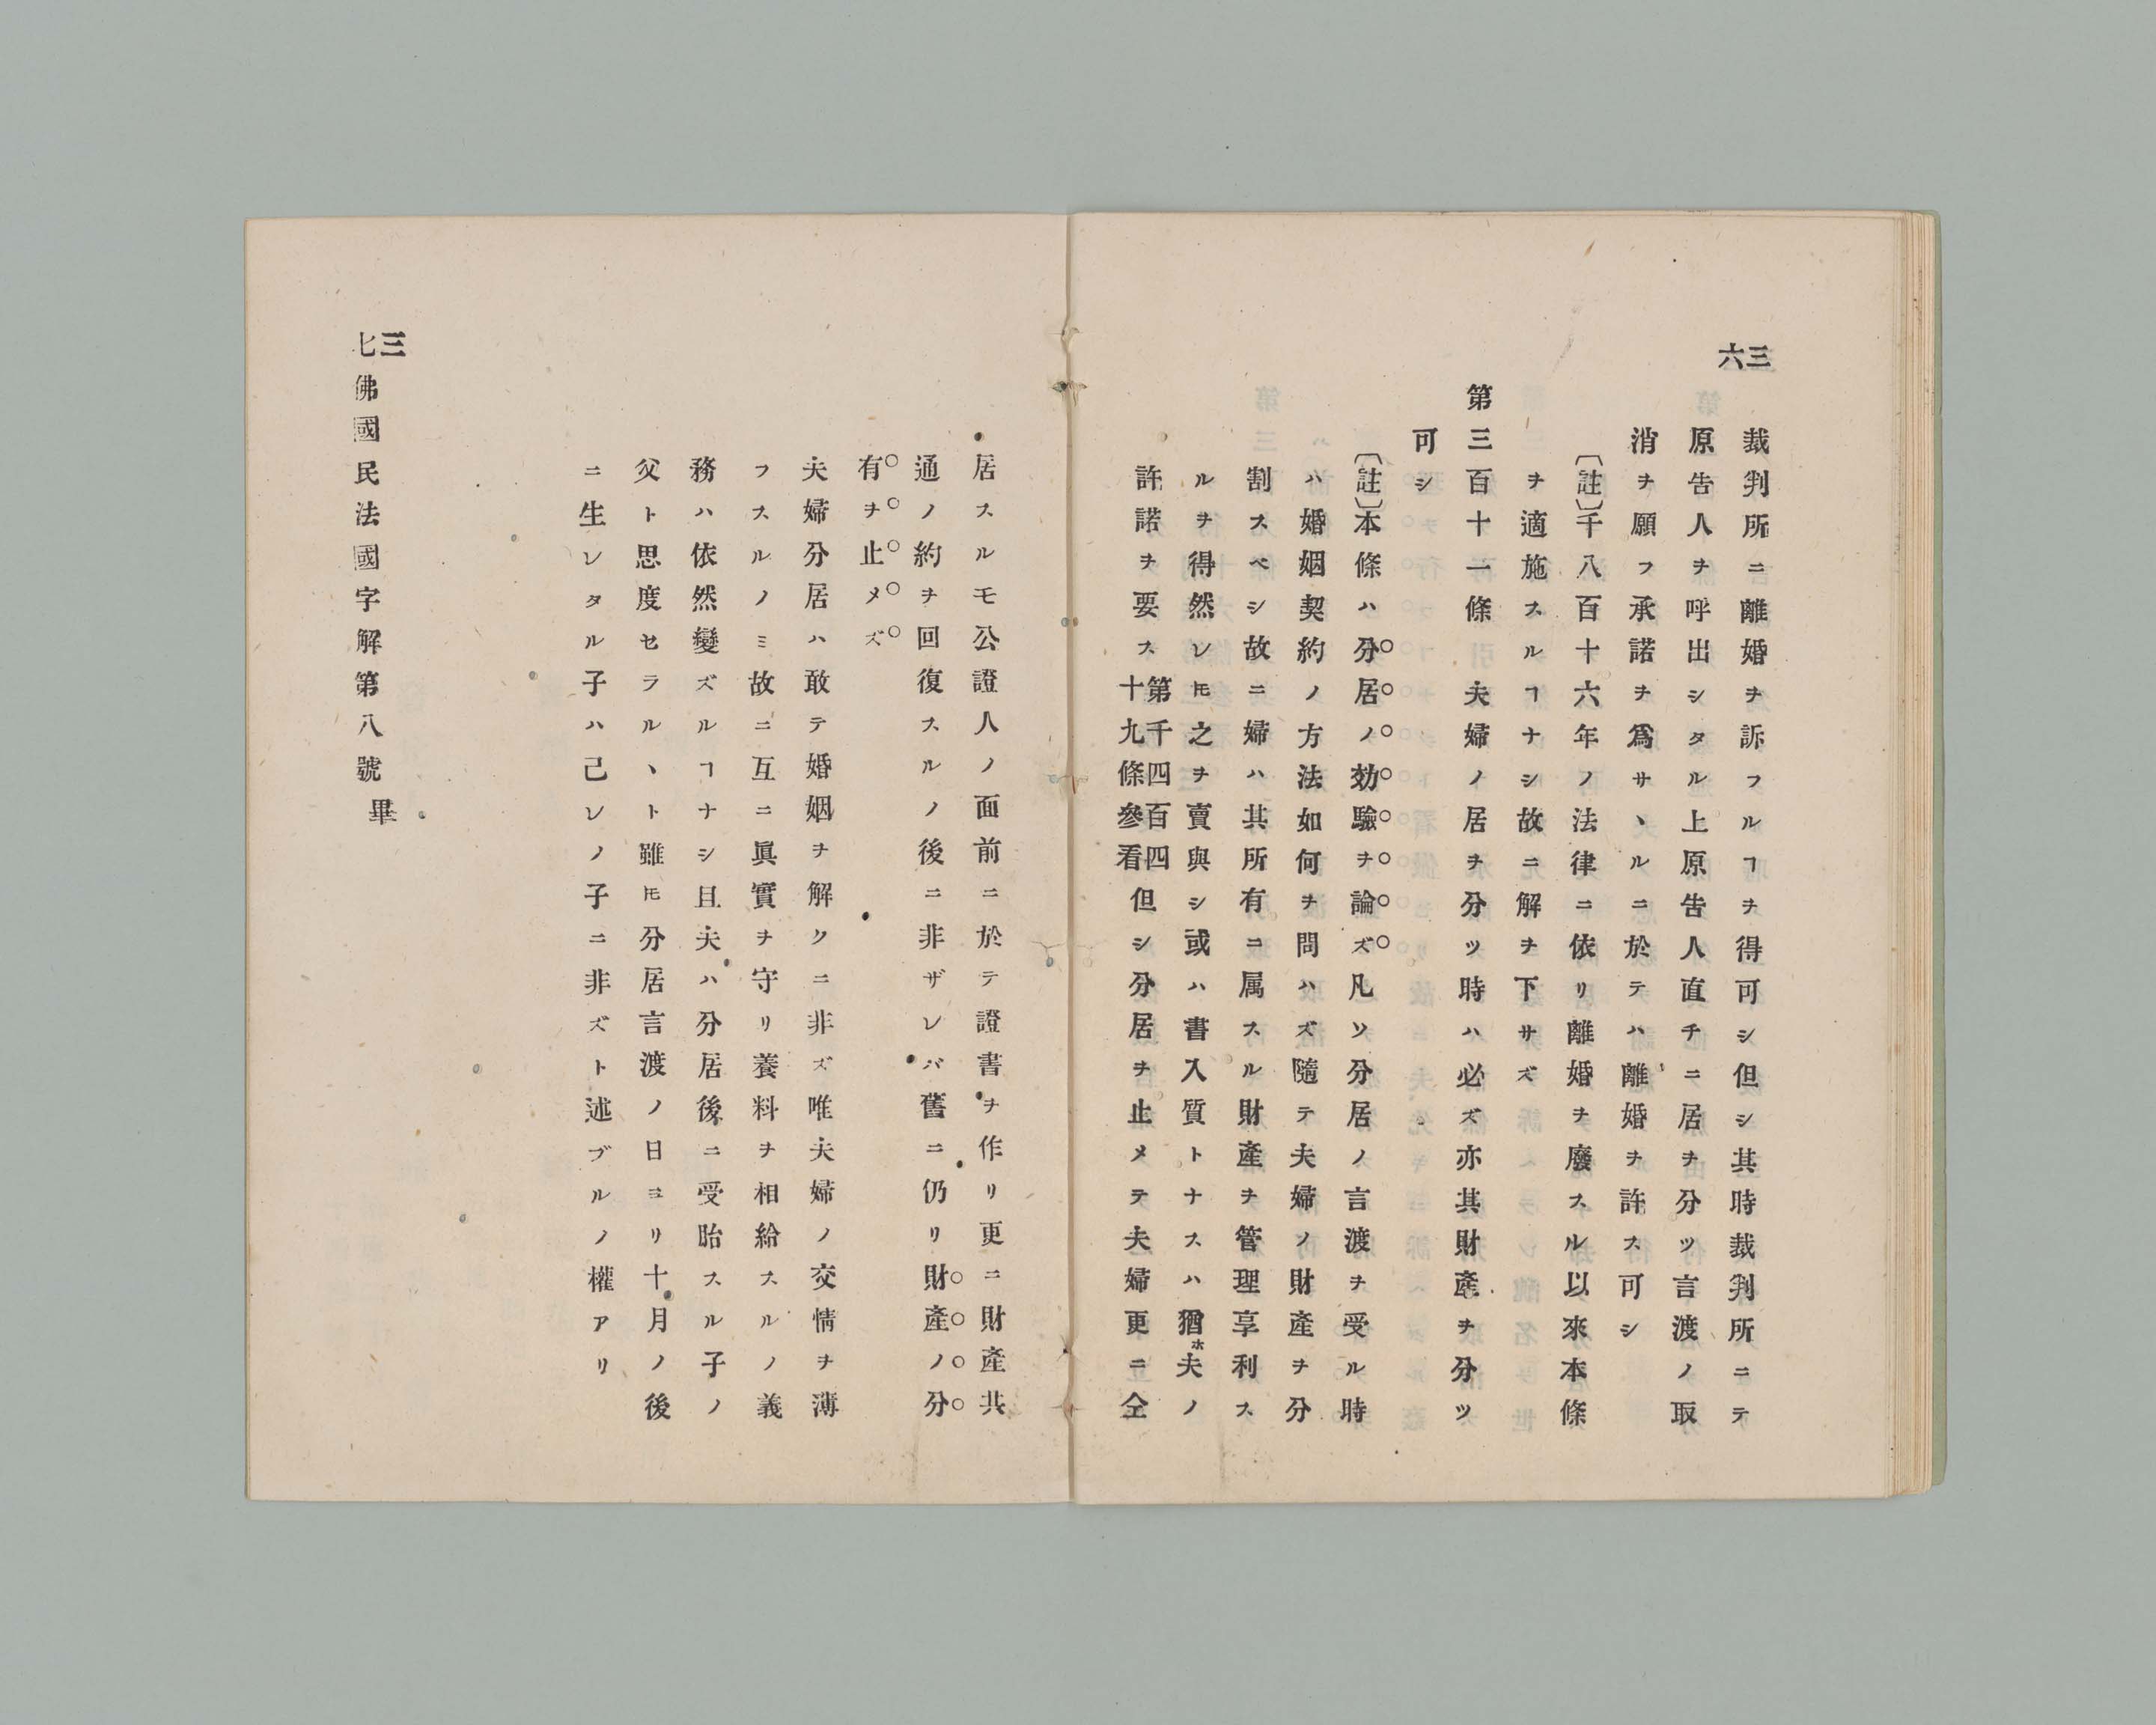 三六
裁判所ニ離婚ヲ訴フルヿヲ得可シ但シ其時裁判所ニテ
原告人ヲ呼出シタル上原告人直チニ居ヲ分ツ言渡ノ取
消ヲ願フ承諾ヲ爲サヽルニ於テハ離婚ヲ許ス可シ
〔註〕千八百十六年ノ法律ニ依リ離婚ヲ廢スル以來本條
ヲ適施スルヿナシ故ニ解ヲ下サズ
第三百十一條 夫婦ノ居ヲ分ツ時ハ必ズ亦其財產ヲ分ツ
可シ
〔註〕本條ハ分居ノ効驗ヲ論ズ凡ソ分居ノ言渡ヲ受ル時
ハ婚姻契約ノ方法如何ヲ問ハズ隨テ夫婦ノ財產ヲ分
割スベシ故ニ婦ハ其所有ニ属スル財產ヲ管理享利ス
ルヲ得然レ𪜈之ヲ賣與シ或ハ書入質トナスハ猶ホ夫ノ
許諾ヲ要ス第千四百四十九條參看但シ分居ヲ止メテ夫婦更ニ仝
居スルモ公證人ノ面前ニ於テ證書ヲ作リ更ニ財產共
通ノ約ヲ回復スルノ後ニ非ザレバ舊ニ仍リ財產ノ分
有ヲ止メズ
夫婦分居ハ敢テ婚姻ヲ解クニ非ズ唯夫婦ノ交情ヲ薄
フスルノミ故ニ互ニ眞實ヲ守リ養料ヲ相給スルノ義
務ハ依然變ズルヿナシ且夫ハ分居後ニ受胎スル子ノ
父ト思度セラルヽト雖𪜈分居言渡ノ日ヨリ十月ノ後
ニ生レタル子ハ己レノ子ニ非ズト述ブルノ權アリ
三七
佛國民法國字解第八號 畢